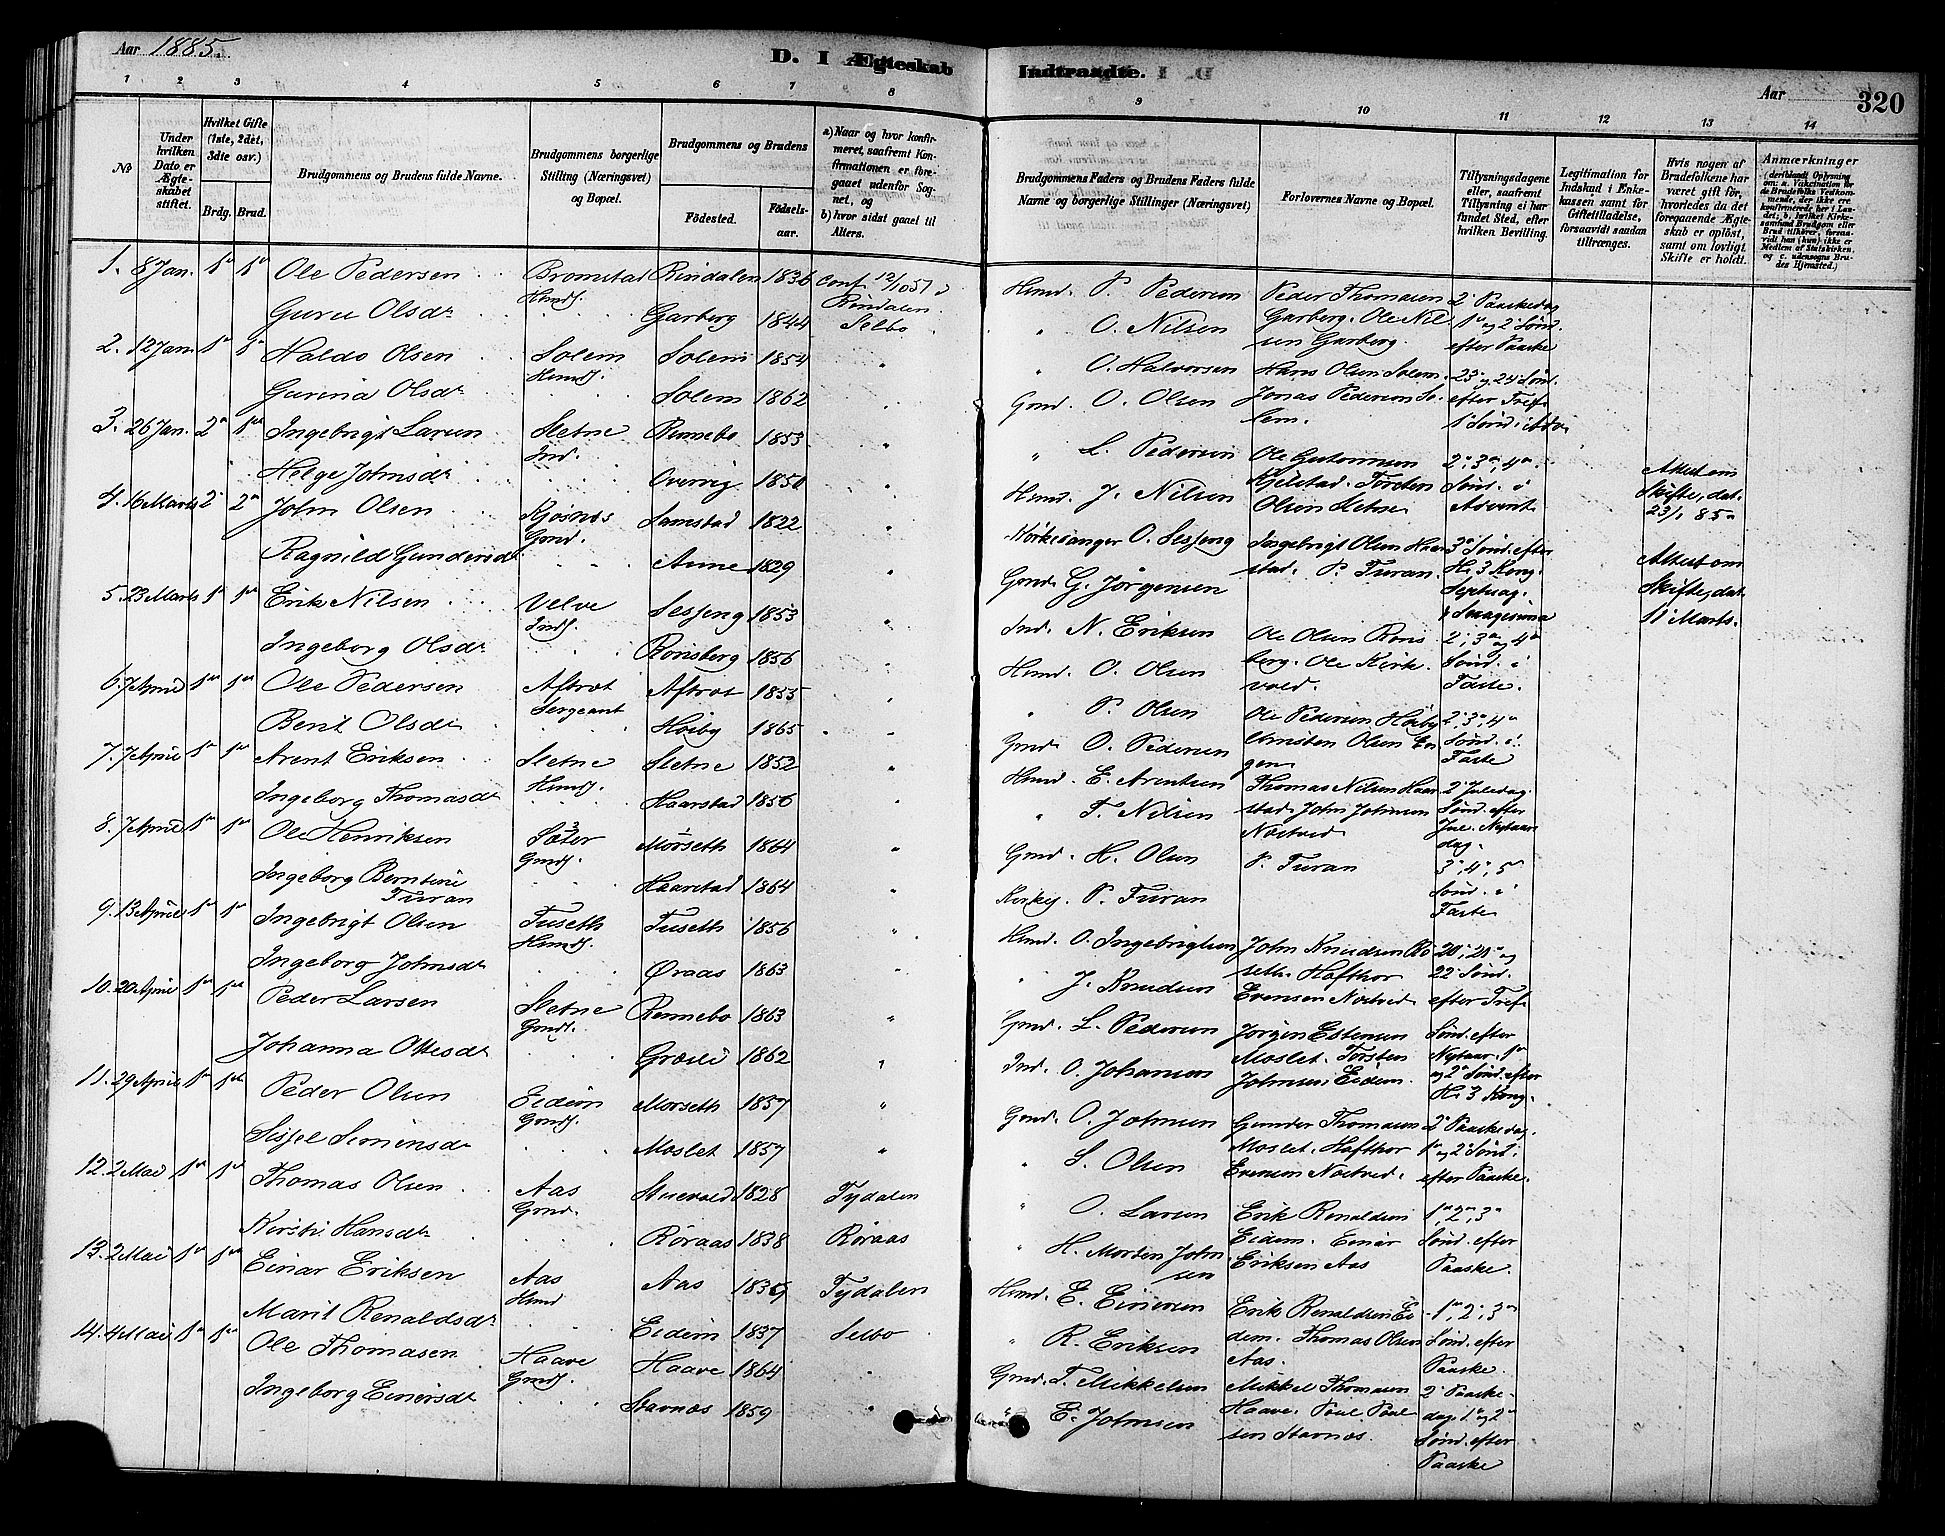 Aar 1885.
D. I Ægteskab Indtraadte.
Aar
320
1 2 3 4 5 6 7 8 9 10 11 12 13 14
No
Under hvilken Dato er Ægteskabet stiftet.
Hvilket Gifte (1ste, 2det, 3die osv.)
Brdg. Brud.
Brudgommens og Brudens fulde Navne.
Brudgommens borgerlige Stilling (Næringsvei) og Bopæl.
Brudgommens og Brudens
Fødested.
Fødselsaar.
a) Naar og hvor konfirmeret, saafremt Konfirmationen er foregaaet udenfor Sognet, og
b) hvor sidst gaaet til Alters.
Brudgommens Faders og Brudens Faders fulde Navne og borgerlige Stillinger (Næringsvei)
Forlovernes Navne og Bopæl.
Tillysningsdagene eller, saafremt Tillysning ei har fundet Sted, efter hvilken Bevilling.
Legitimation for Indskud i Enkekassen samt for Giftetilladelse, forsaavidt saadan tiltrænges.
Hvis nogen af Brudefolkene har været gift før, hvorledes da det foregaaende Ægteskab er opløst, samt om lovligt Skifte er holdt.
Anmærkninger
1. 8 Jan. 1ste 1ste Ole Pedersen Bromstad Rindalen 1836 conf 12/10 51 i Hmd. P. Pedersen Peder Thomasen 2 Paaskedag
Husmd. Rindalen
Guru Olsdr Garberg 1844 Selbo " O. Nilsen Garberg. Ole Nilsen Garberg. 1ste og 2 Sønd. efter Paaske
2. 12 Jan. Haldo Olsen Solem Solem 1854 " " O. Halvorsen Hans Olsen Solem 23 og 24 Sønd.
Gurina Olsdr Solem 1862 " Gmd. O. Olsen Jonas Pedersen Solem. efter Tref. 1 Sønd i Adv.
3. 26 Jan. 2 Ingebrigt Larsen Sletne Rennebo 1853 " " L. Pedersen Ole Guttormsen 2, 3, 4
Ind.
Helge Johnsdr Overvig 1850 " Hmd. J. Nilsen Kjelstad. Torsten Olsen Sletne. Sønd. i Advent Attest om Skifte, dat. 23/1 85
4. 16 Marts 2 2 John Olsen Kjøsnes Samstad 1822 " Kirkesanger O. Sesseng Ingebrigt Olsen Haarstad. P. Turan. 3 Sønd. efter H. 3 Kong.
Gmd.
Ragnild Gundersdr Aune 1829 " Gmd. G. Jörgensen Septuag. Attest om Skifte, dat. 11 Marts.
5. 23 Marts Erik Nilsen Velve Sesseng 1853 " Ind. N. Eriksen Ole Olsen Rønsberg. Ole Kirkvold. 2, 3 og 4
Ingeborg Olsdr Rønsberg 1856 Hmd. O. Olsen Sønd. i Faste.
6. 7 April Ole Pedersen Aftret Aftret 1855 " " P. Olsen Ole Pedersen Høiby 2, 3, 4
Sergeant
Berit Olsdr Høiby 1865 " Gmd. O. Pedersen Arnsten Olsen Engen. Sønd. i Faste
7. 7 April Arent Eriksen Sletne Sletne 1852 " Hmd. E. Arentsen Thomas Nilsen Haarstad. John Johnsen Næstved 2 Juledag
Ingeborg Thomasdr Haarstad 1856 " " T. Nilsen Sønd. efter Jul. Nytaarsdag.
8. 7 April Ole Henriksen Sæter Mørseth 1864 " Gmd. H. Olsen P. Turan 3, 4, 5
Ingeborg Berntine Turan Haarstad 1864 " Kirkes. P. Turan Sønd. i Faste
9. 13 April Ingebrigt Olsen Tuseth Tuseth 1856 " Hmd. O. Ingebrigtsen John Knudsen Roseth. Hafthor Evensen Nostvid. 20, 21 og 22 Sønd. efter Tref.
Ingeborg Johnsdr Øraas 1863 " " J. Knudsen
10. 20 April Peder Larsen Sletne Rennebo 1863 " Gmd. L. Pedersen Jørgen Estensen Moslet. Torsten Johnsen Eidem. Sønd. efter Nytaar. 1
Johanna Ottesdr Græsli 1862 " Ind. O. Johansen og 2 Sønd. efter H. 3 Kong.
11. 29 April Peder Olsen Eidem Morseth 1857 " Gmd. O. Johnsen Gunder Thomasen Moslet. Hafthor Evensen Nostvid. 2 Paaskedag.
Sissel Simensdr Moslet 1857 " " S. Olsen 1 og 2 Sønd. efter Paaske.
12. 2 Mai Thomas Olsen Aas Stuevold 1828 Tydalen " O. Larsen Erik Renaldsen Eidem. Einar Eriksen Aas 1, 2, 3
Gmd.
Kirsti Hansdr Røraas 1838 Røraas " H. Morten Johnsen Sønd. efter Paaske.
13. 2 Mai Einar Eriksen Aas Aas 1836 Tydalen Hmd. E. Einersen Erik Renaldsen Eidem. Thomas Olsen Aas. 1, 2, 3
Hmd
Marit Renaldsdr Eidem 1837 Selbo " R. Eriksen Sønd. efter Paaske.
14. 4 Mai Ole Thomasen Haave Haave 1864 " Gmd. T. Mikkelsen Mikkel Thomasen Haave. Poul Poulsen Stavnæs. 2 Paaskedag. 1 og 2
Ingeborg Einersdr Stavnæs 1859 " " E. Johnsen Sønd. efter Paaske